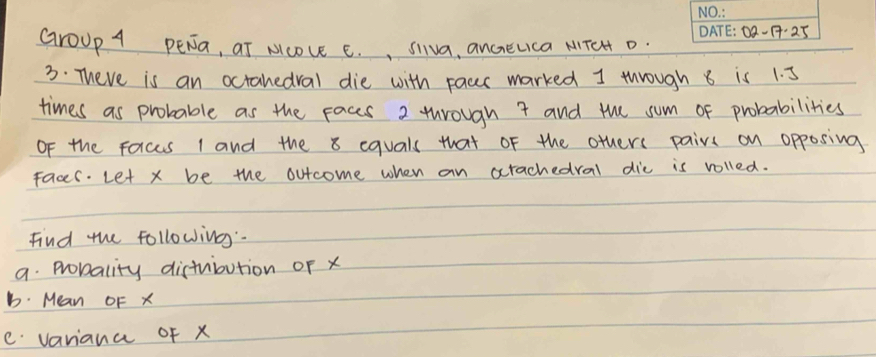 NO.:
DATE: 02-17-25
Group 4 PEÑa, aT NICOLE E., SIlva, anGELICa NITCH D.
3. There is an octahedral die with faces marked 1 through 8 is 1.5
times as probable as the faces 2 through 7 and the sum of probabilities
of the faces 1 and the 8 equals that of the others pairs on opposing
faces. Let x be the outcome when an octachedral die is rolled.
Find the following:-
a. Probality distribution of x
b. Mean of x
c. variance of x